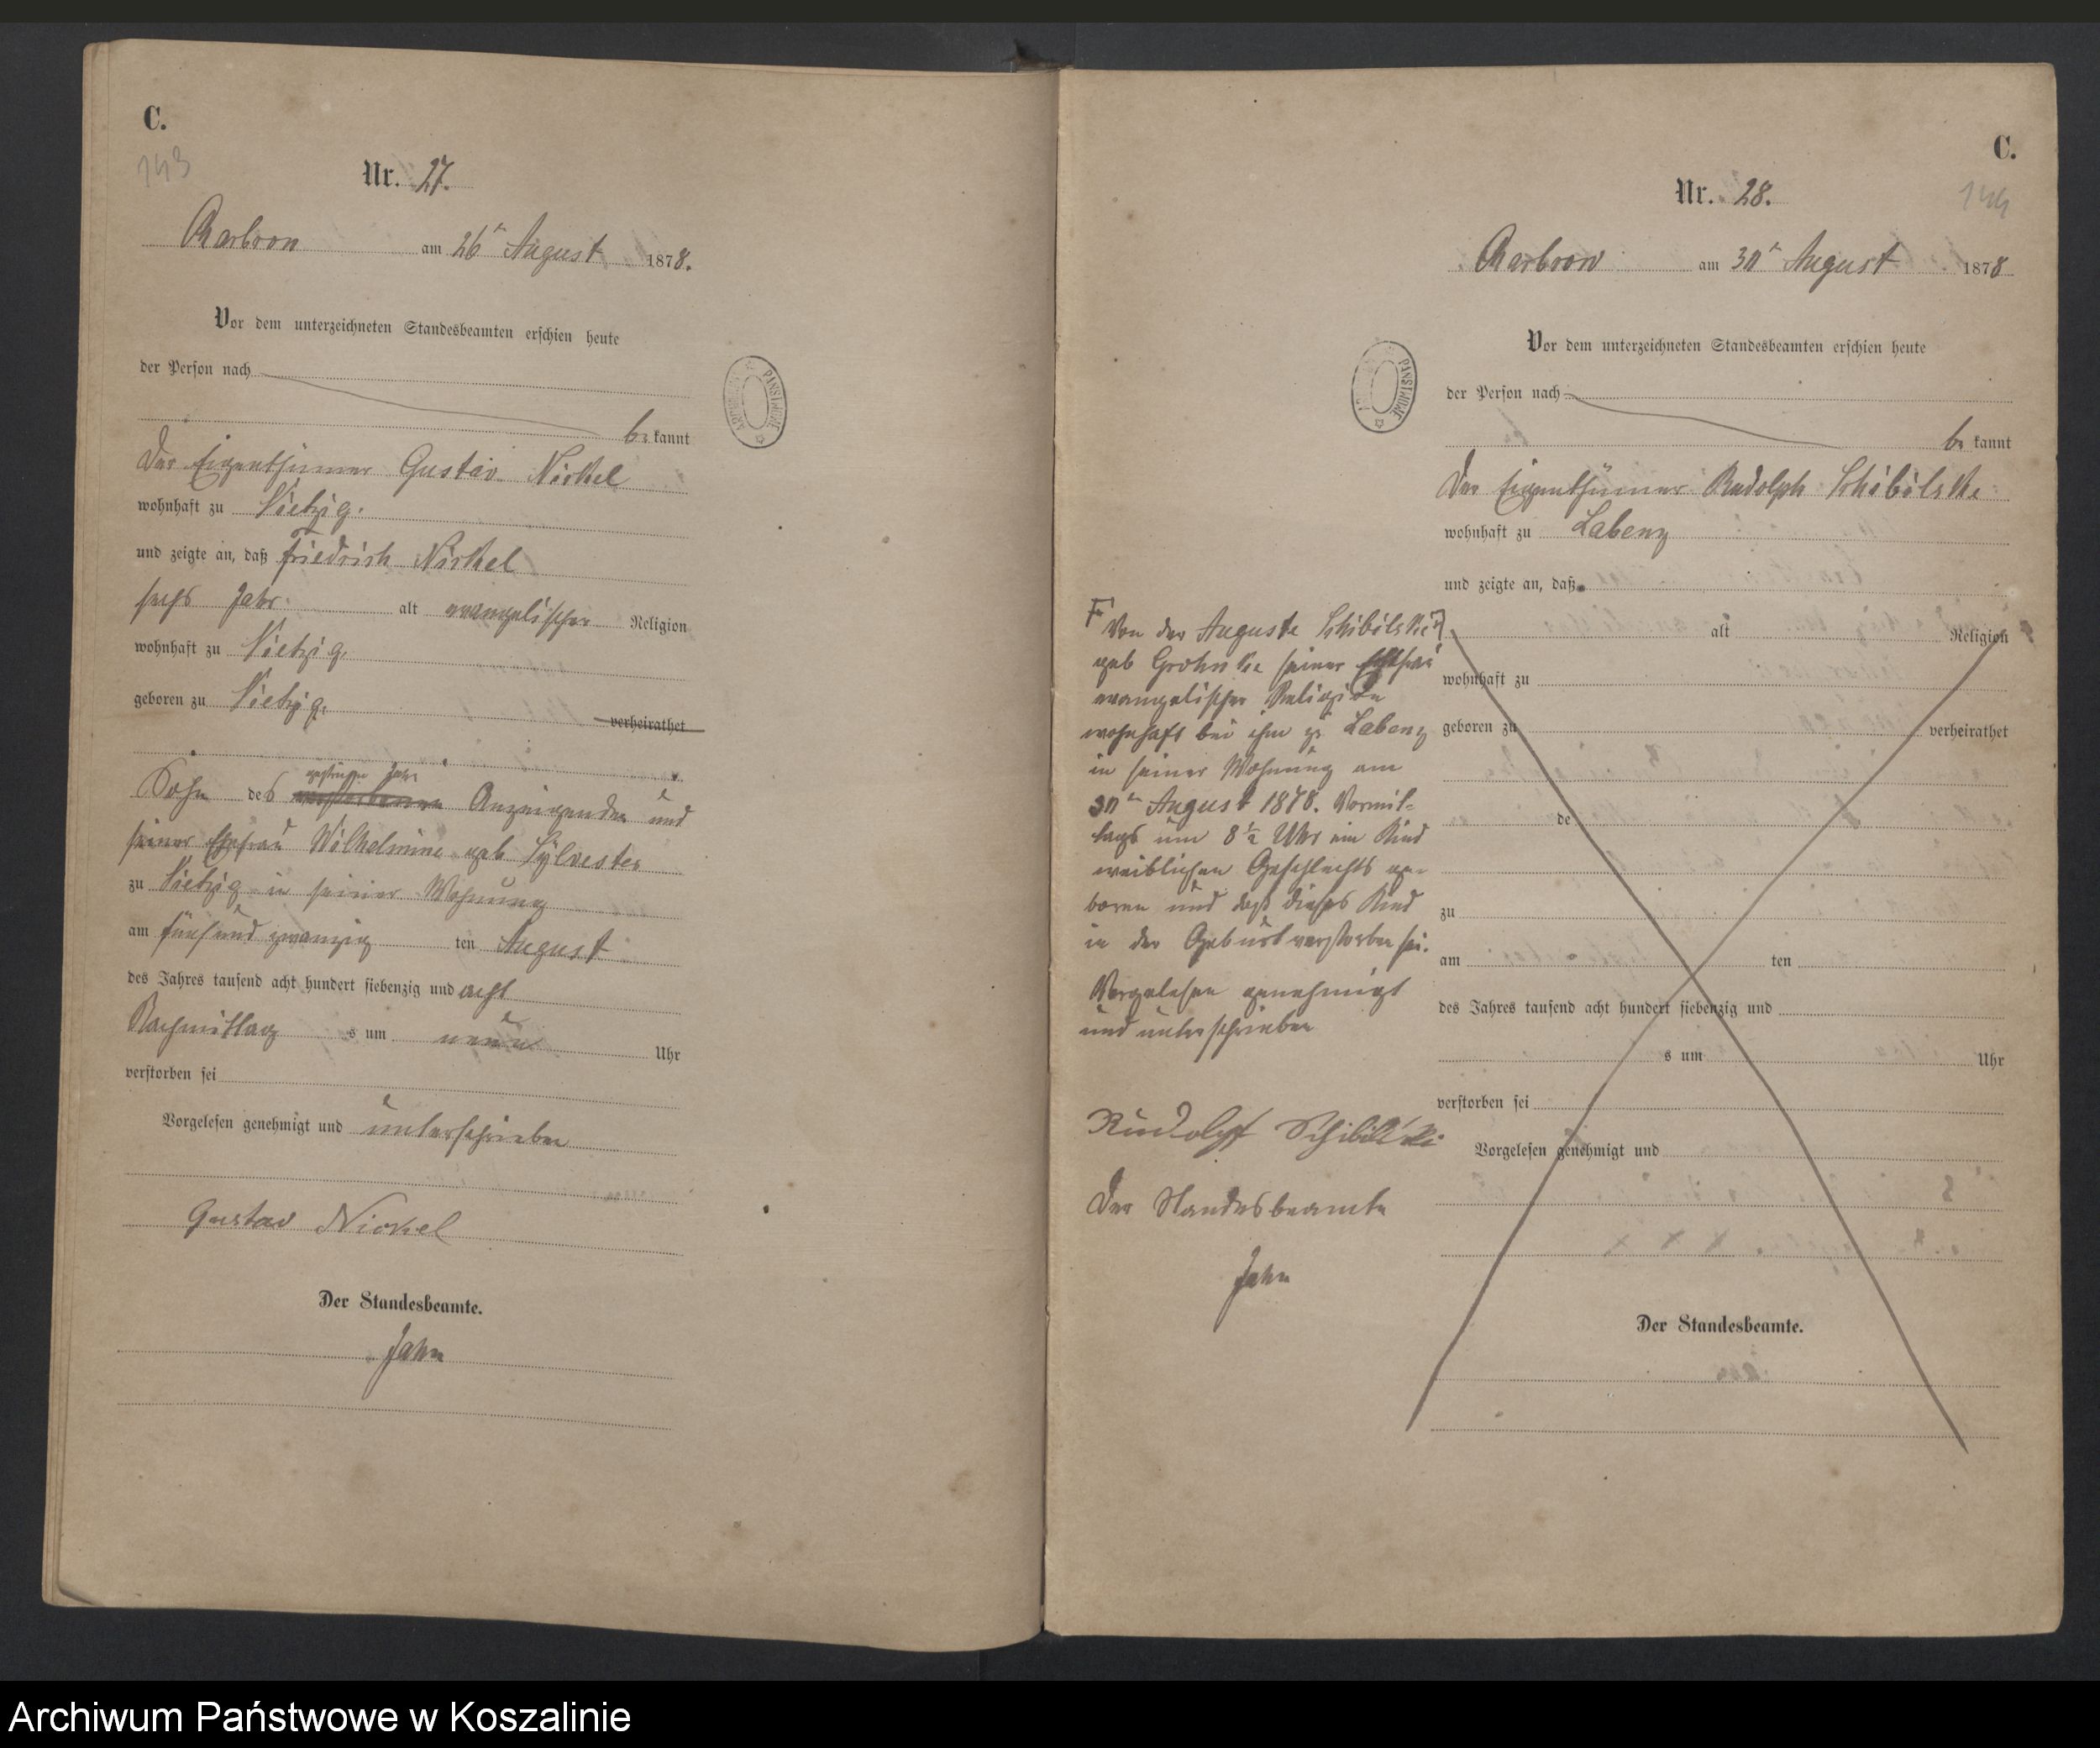 C.
143
Nr. 27.
Charbrow am 26ten August 1878.
Vor dem unterzeichneten Standesbeamten erschien heute
der Person nach
bekannt
Der Eigenthümer Gustav Nickel
wohnhaft zu Vietzig.
und zeigte an, daß Friedrich Nickel
sechs Jahr alt evangelischer Religion
wohnhaft zu Vietzig,
geboren zu Vietzig, verheirathet
gestrichen Jahn
Sohn des verstorbenen Anzeigenden und
seiner Ehefrau Wilhelmine geb Sylvester
zu Vietzig in seiner Wohnung
am fünf und zwanzig ten August
des Jahres tausend acht hundert siebenzig und acht
Nachmittag s um neun Uhr
verstorben sei
Vorgelesen genehmigt und unterschrieben
Gustav Nickel
Der Standesbeamte.
Jahn
ARCHIWUM PAŃSTWOWE
C.
144
Nr. 28.
Charbrow am 30ten August 1878
Vor dem unterzeichneten Standesbeamten erschien heute
der Person nach
bekannt
Der Eigenthümer Rudolph Schibilske
wohnhaft zu Labenz
und zeigte an, daß
alt Religion
wohnhaft zu
geboren zu verheirathet
de
zu
am ten
des Jahres tausend acht hundert siebenzig und
s um Uhr
verstorben sei
Vorgelesen genehmigt und
Der Standesbeamte.
Von der Auguste Schibilske
geb Grohnke seiner Ehefrau
evangelischer Religion
wohnhaft bei ihm zu Labenz
in seiner Wohnung am
30ten August 1878. Vormit-
tags um 8½ Uhr ein Kind
weiblichen Geschlechts ge-
boren und daß dieses Kind
in der Geburt verstorben sei.
Vorgelesen genehmigt
und unterschrieben
Rudolph Schibilski
Der Standesbeamte
Jahn
ARCHIWUM PAŃSTWOWE
Archiwum Państwowe w Koszalinie